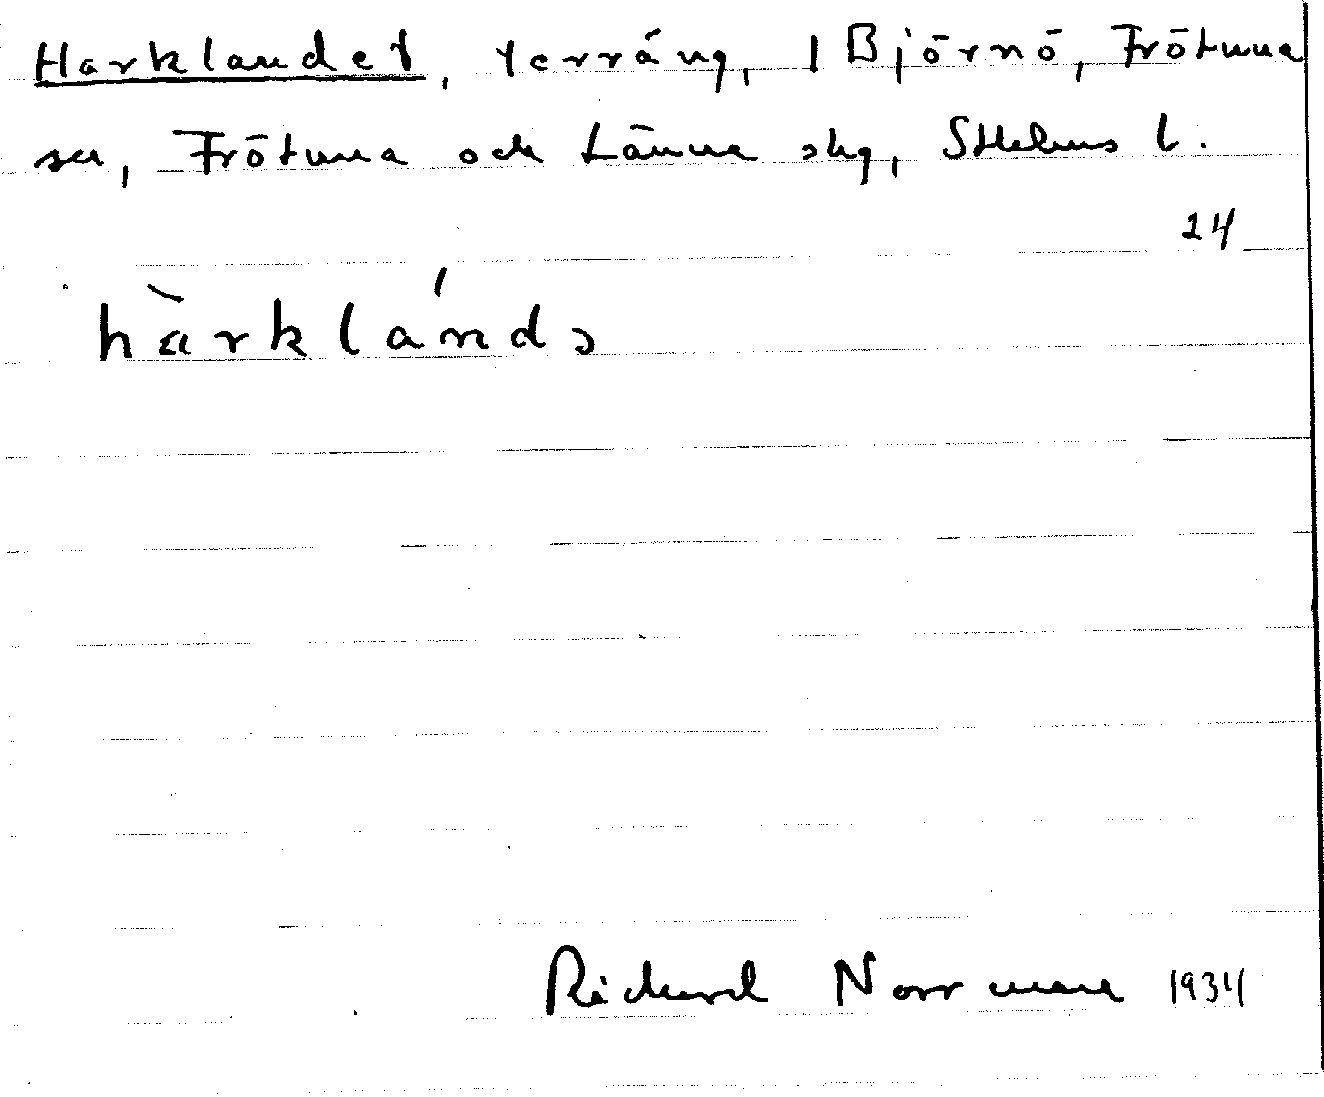 Harklandet, terräng, 1 Björnö, Frötuna
sn, Frötuna och Länna skg, Sthlms l.
24
hàrklándɔ
Rickard Norrman 1934